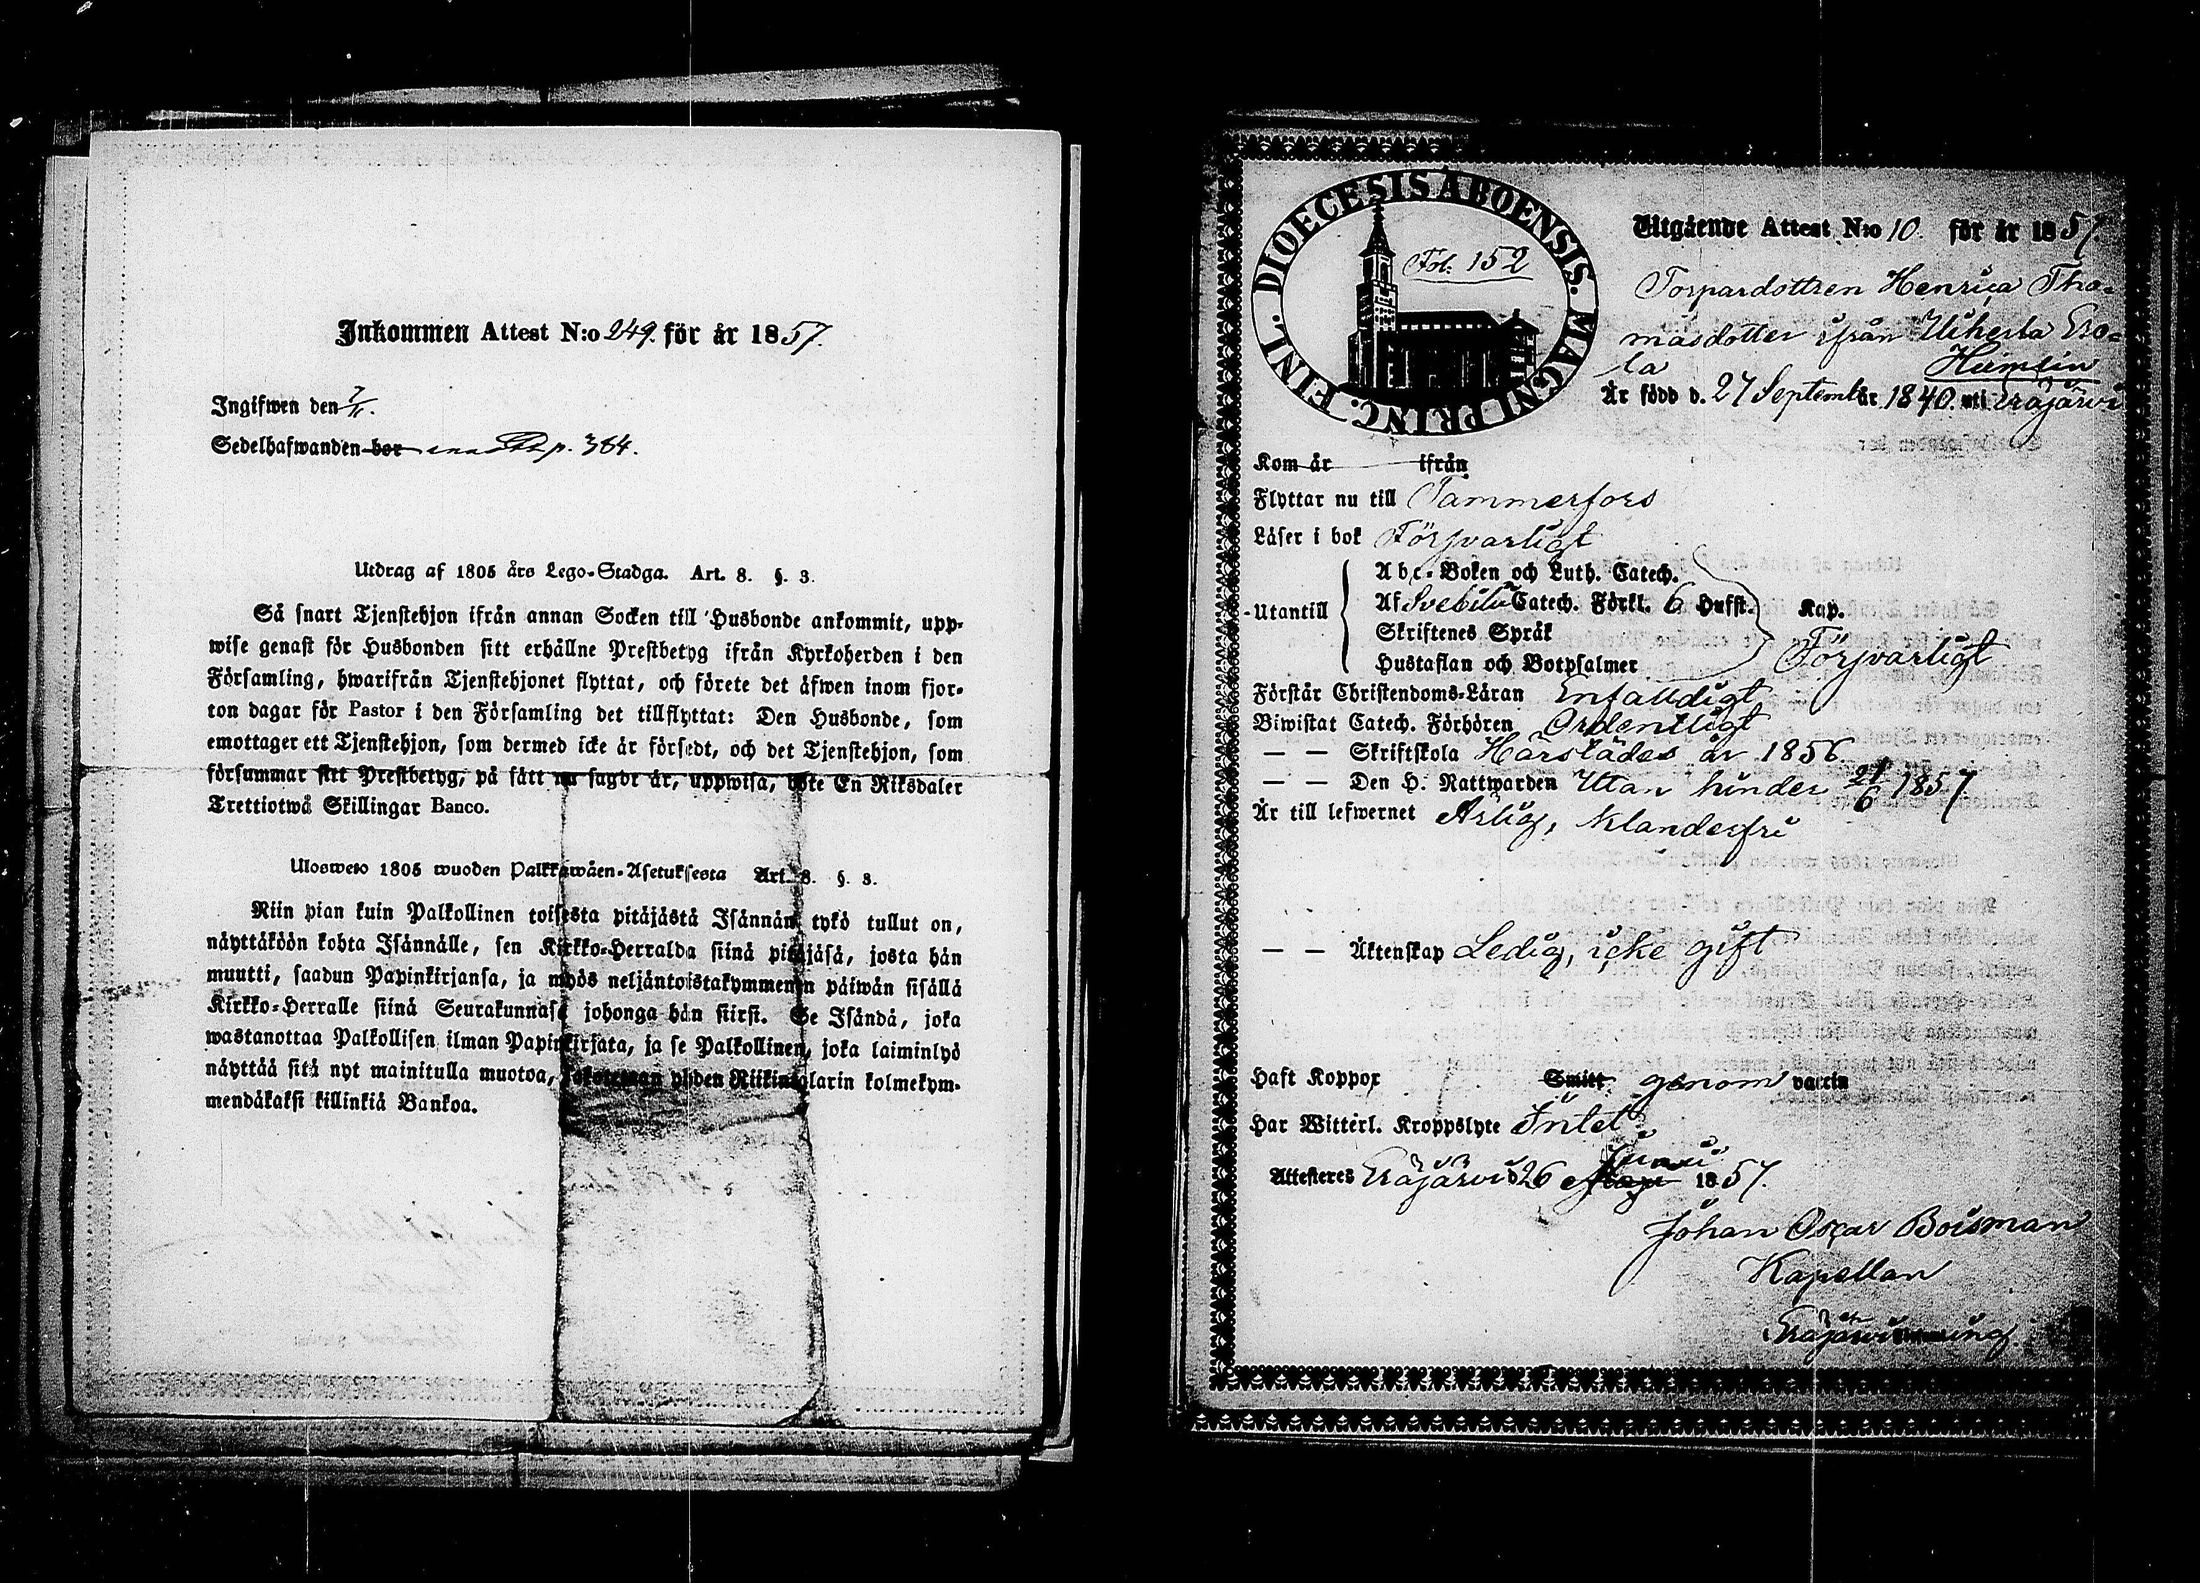 Inkommen Attest N:o 249. för år 1857.
Ingifwen den 7/11.
Sedelhafwanden bor p. 384.
Utdrag af 1805 års Lego-Stadga. Art. 8. §. 3.
Så snart Tjenstehjon ifrån annan Socken till Husbonde ankommit, upp-
wise genast för Husbonden sitt erhållne Prestbetyg ifrån Kyrkoherden i den
Församling, hwarifrån Tjenstehjonet flyttat, och förete det äfwen inom fjor-
ton dagar för Pastor i den Församling det tillflyttat: Den Husbonde, som
emottager ett Tjenstehjon, som dermed icke är försedt, och det Tjenstehjon, som
försummar sitt Prestbetyg, på sätt nu sagdt är, uppwisa, böte En Riksdaler
Trettiotwå Skillingar Banco.
Ulosweto 1805 wuoden Palkkawäen-Asetuksesta Art. 8. §. 3.
Niin pian kuin Palkollinen toisesta pitäjästä Isännän tykö tullut on,
näyttäköön kohta Isännälle, sen Kirkko-Herralda siinä pitäjäsä, josta hän
muutti, saadun Papinkirjansa, ja myös neljäntoistakymmenen päiwän sisällä
Kirkko-Herralle siinä Seurakunnasa johonga hän siirsi. Se Isändä, joka
wastanottaa Palkollisen ilman Papinkirjata, ja se Palkollinen, joka laiminlyö
näyttää sitä nyt mainitulla muotoa, yhden Riikintalarin kolmekym-
mendäkaksi killinkiä Bankoa.
DIOECESIS ABOENSIS. MAGNI PRINC. FINL.
Fol: 152
Utgående Attest N:o 10. för år 1857.
Torpardottren Henrica Tho-
masdotter ifrån Uiherla Ero-
la Heimlin
Är född d. 27 September 1840. uti Eräjärvi
Kom år ifrån
Flyttar nu till Tammerfors
Läser i bok Försvarligt
Abc-Boken och Luth. Catech.
Utantill Af Svebilii Catech. Förkl. 6 Hufst. Kap.
Skriftenes Språk
Hustaflan och Botpsalmer Försvarligt
Förstår Christendoms-Läran Enfaldigt
Biwistat Catech. Förhören Ordentligt
— — Skriftskola Härstädes år 1856.
— — Den H. Nattwarden Utan hinder 21/6 1857
Är till lefwernet Ärlig, klanderfri
— — Äktenskap Ledig, icke gift
Haft Koppor Smitt genom vaccin
Har Witterl. Kroppslyte Intet
Junii
Attesteres Eräjärvi d 26 Maji 1857.
Johan Oscar Boisman
Kapellan